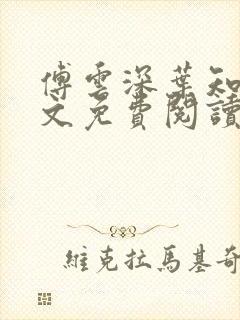 傅雲深葉知
文免費閱讀
維克拉馬基奇